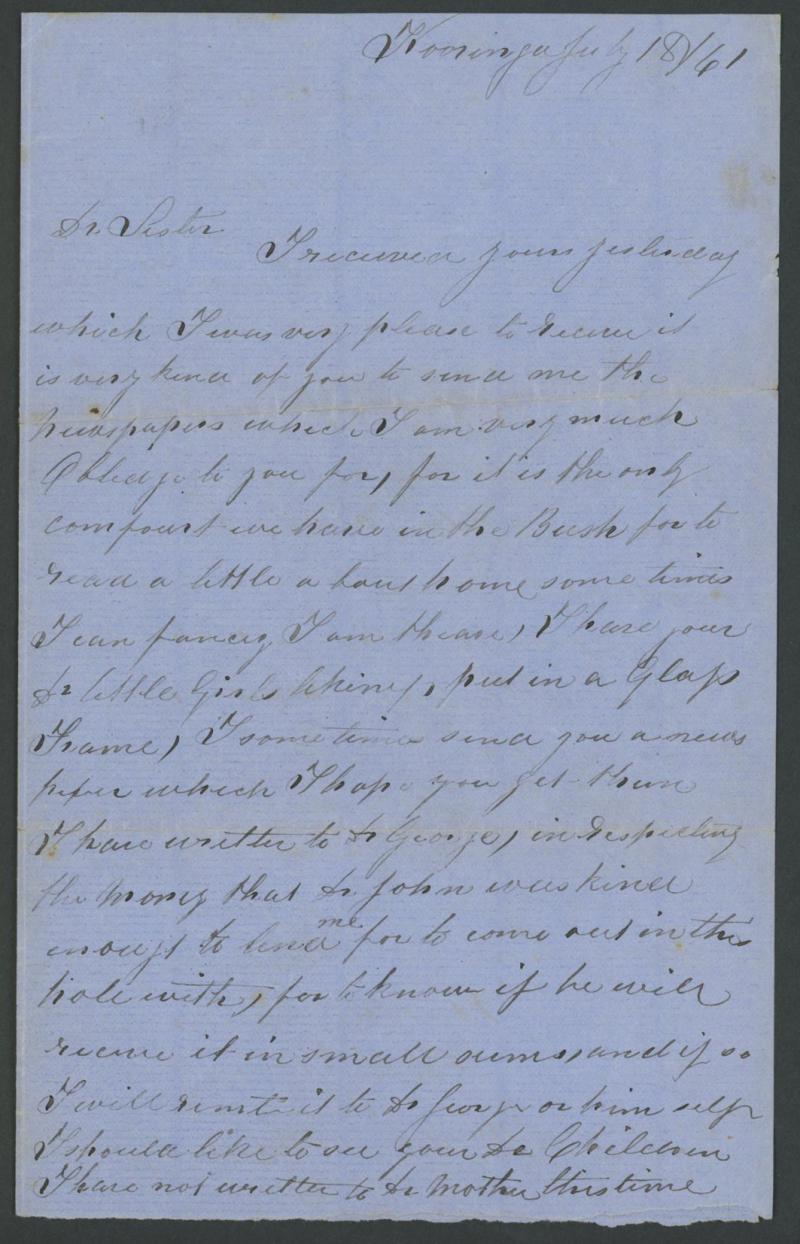 Kooringa July 18/61
Dr. Sister
I received yours yesterday
which I was very please to receive it
is very kind of you to send me the
newspapers which I am very much
Obledge to you for, for it is the only
compourt we have in the Bush for to
read a little a bout home some times
I can fancey I am theare, I have your
Dr little Girls likiny, put in a Glass
Frame, I sometimes send you a news
peper which I hope you get them
I have written to Dr George, in respecting
the money that Dr John was kind
enough to lend me for to come out in this
hole with, for to know if he will
receive it in small sums, and if so
I will remit it to Dr George or him self
I should like to see your Dr Children
I have not written to Dr Mother this time